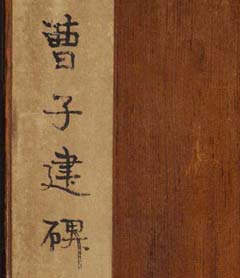 曹子建碑